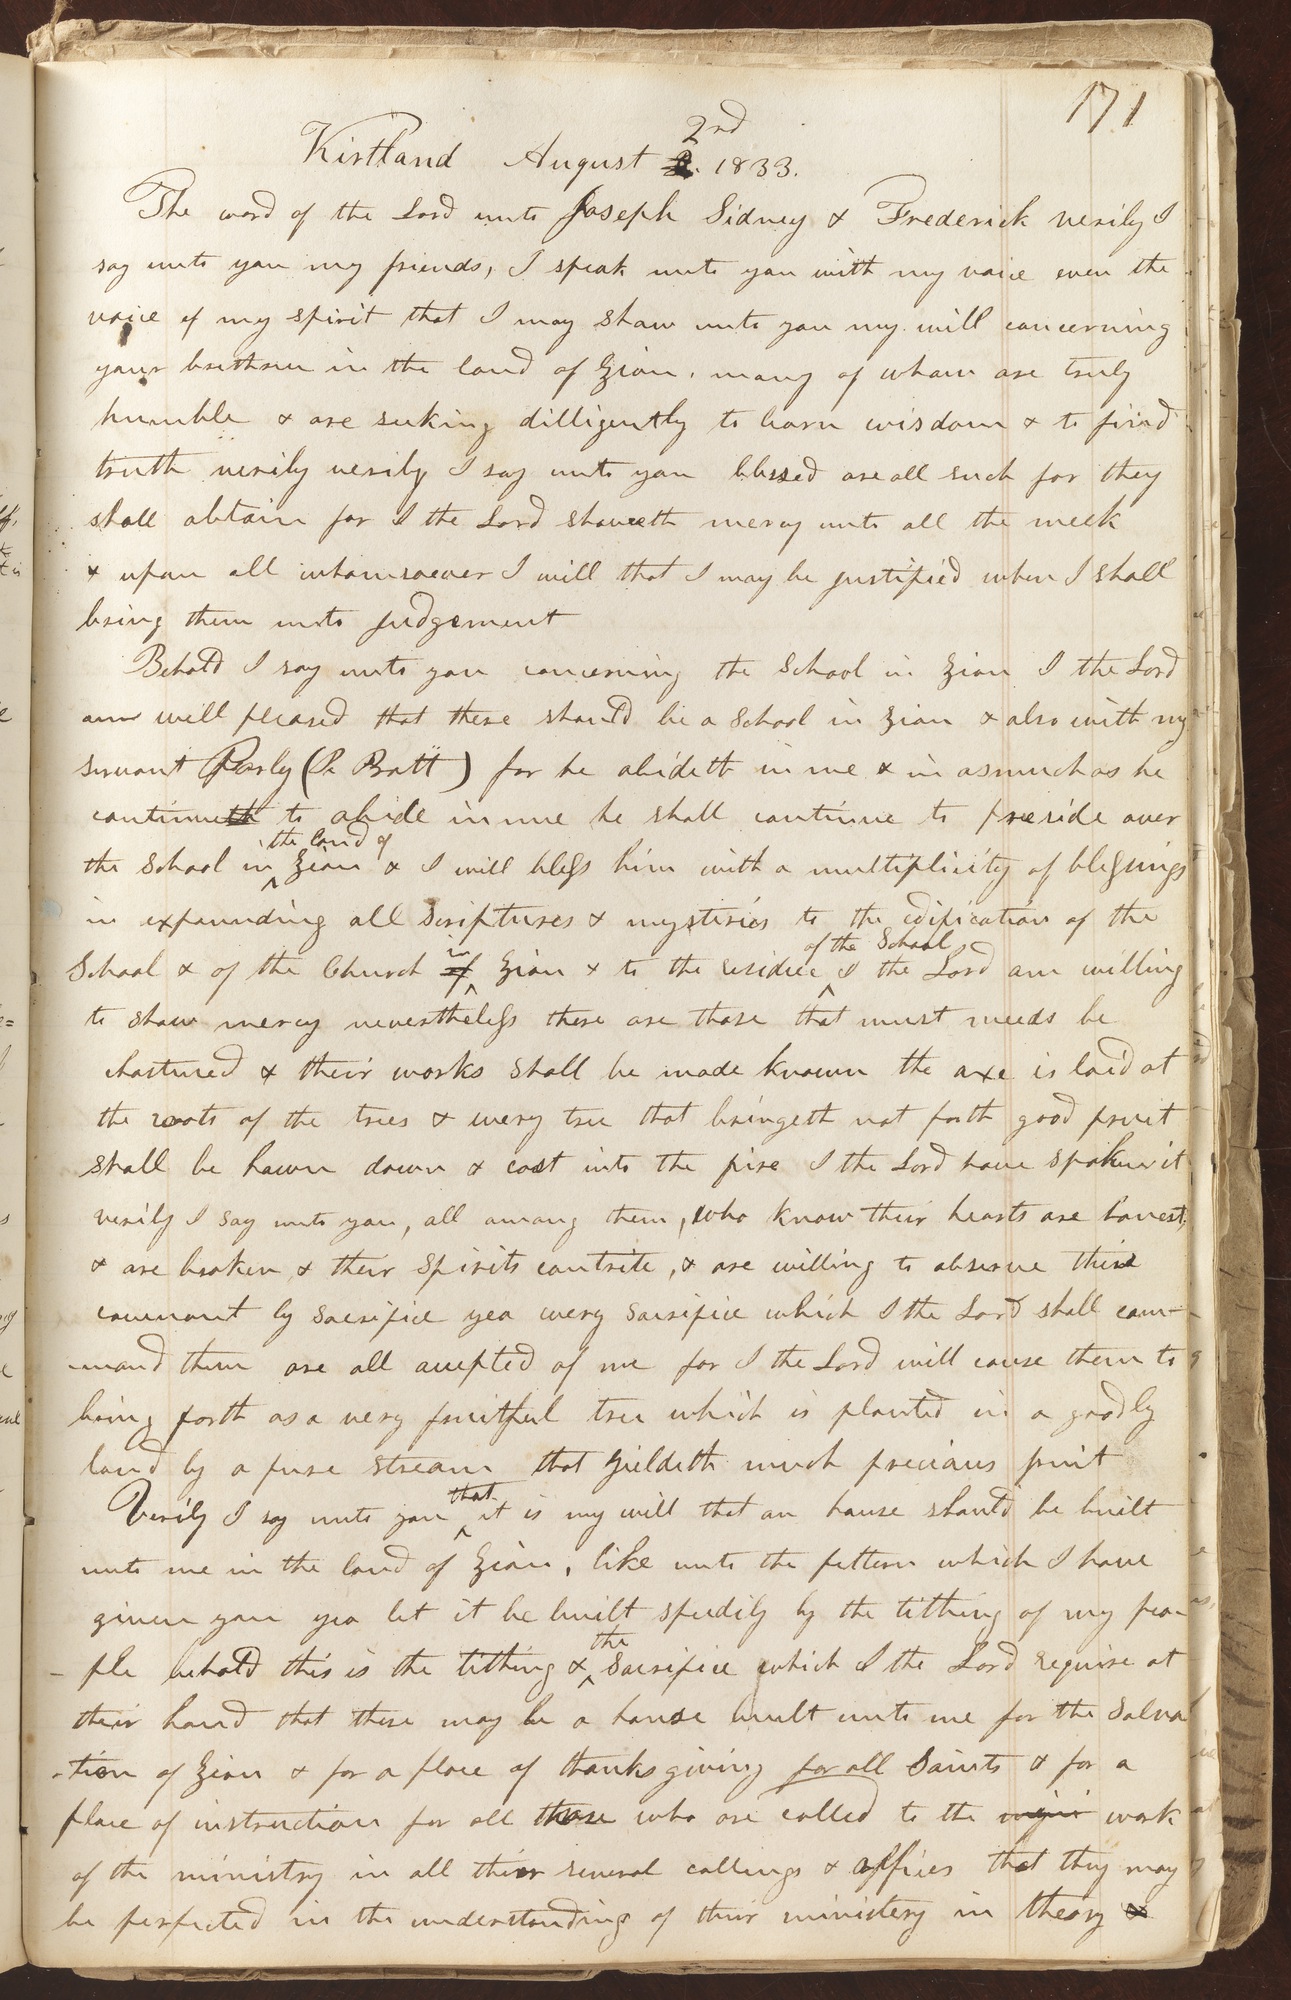 171
Kirtland August 2nd 1833.
The word of the Lord unto Joseph Sidney & Frederick verily I
say unto you my friends, I speak unto you with my voice even the
voice of my spirit that I may shew unto you my will concerning
your brethren in the land of Zion, many of whom are truly
humble & are seeking dilligently to learn wisdom & to find
truth verily verily I say unto you blessed are all such for they
shall obtain for I the Lord sheweth mercy unto all the meek
& upon all whomsoever I will that I may be justified when I shall
bring them unto judgement
Behold I say unto you concerning the School in Zion I the Lord
am well pleased that there should be a School in Zion & also with my
servant Parly (P. Pratt) for he abideth in me & inasmuch as he
continueth to abide in me he shall continue to preside over
the School in the land of Zion & I will bless him with a multiplicity of blessings
in expounding all scriptures & mysteries to the edification of the
School & of the Church of in Zion & to the residue of the School I the Lord am willing
to shew mercy nevertheless there are those that must needs be
chastured & their works shall be made known the axe is laid at
the roots of the trees & every tree that bringeth not forth good fruit
shall be hewn down & cast into the fire I the Lord have spoken it
verily I say unto you, all among them, who know their hearts are honest,
& are broken & their spirits contrite, & are willing to observe their
covenant by sacrifice yea every sacrifice which I the Lord shall com-
mand them are all accepted of me for I the Lord will cause them to
bring forth as a very fruitful tree which is planted in a goodly
land by a pure stream that yieldeth much precious fruit
Verily I say unto you that it is my will that an house should be built
unto me in the land of Zion, like unto the pattern which I have
given you yea let it be built speedily by the tithing of my peo-
-ple behold this is the tithing & the sacrifice which I the Lord require at
their hand that there may be a house built unto me for the salva
-tion of Zion & for a place of thanksgiving for all Saints & for a
place of instruction for all those who are called to the work
of the ministry in all their several callings & offices that they may
be perfected in the understanding of their ministery in theory &